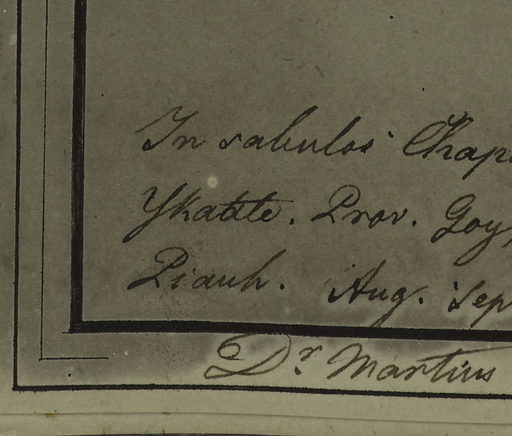 In sabulos Chap
Prov. Goy
Piauh. Aug. Sep
Dr. Martius